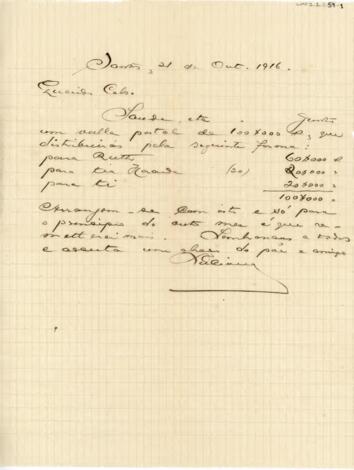 Santos, 21 de Out. 1916.
Querido Celso.
Saude, etc. Junto
um valle postal de 100$000 rs, que
distribuiras pela seguinte forma:
para Ruth 60$000
para tia (20) 20$000
para ti 20$000
100$000
Arranjem-se com isto e só para
o principio do outro mez é que re-
metterei mais. Lembranças a todos
e acceita um abraço do pae e amigo